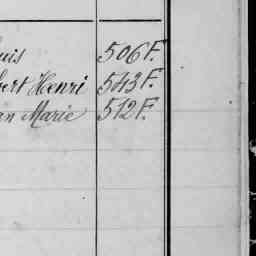 uis 506 F.
bert Henri 543 F.
an Marie 512 F.